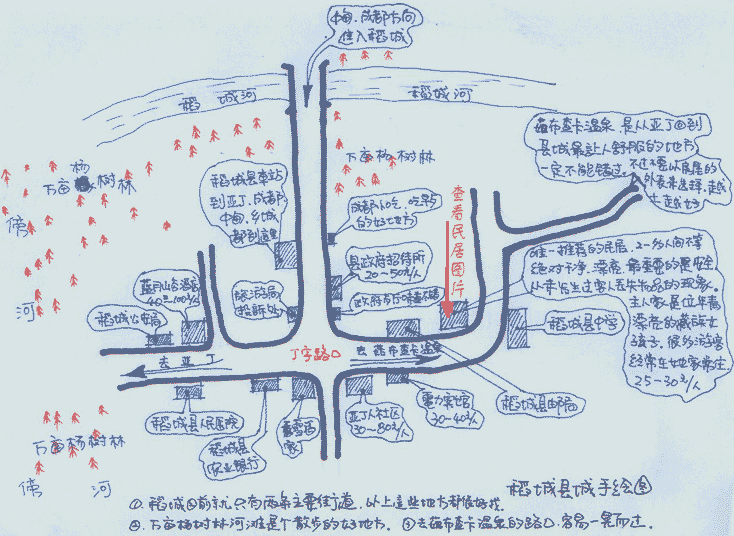 中甸.成都方向
进入稻城
稻城河
稻城河
茹布查卡温泉是从亚丁回到
县城最让人舒服的地方
一定不能错过。不过不要以房屋的
外表来选择,越
土越好
万亩杨树林
万亩杨树林
傍
河
稻城县车站
到亚丁.成都
中甸.乡城
都到这里
成都小吃.吃早点
的好地方
查看民居图片
县政府招待所
20~50元/人
唯一推荐的民居.2-多人间不等
绝对干净.漂亮.最重要的是安全
从未发生过客人丢失物品的现象.
主人家是位年青
漂亮的藏族女
孩子,很多游客
经常在她家常住.
25-30元/人
40-100元/人
稻城公安局
旅游局
投诉处
稻城县中学
丁字路口
去亚丁
去茹布查卡温泉
稻城县人民医院
稻城县
农业银行
酒
家
亚丁人社区
30~80元/人
电力宾馆
30-40元/人
稻城县邮局
万亩杨树林
傍河
稻城县城手绘图
①.稻城目前就只有两条主要街道,以上这些地方都很好找.
②.万亩杨树林河滩是个散步的好地方.③去茹布查卡温泉的路口.容易一晃而过.